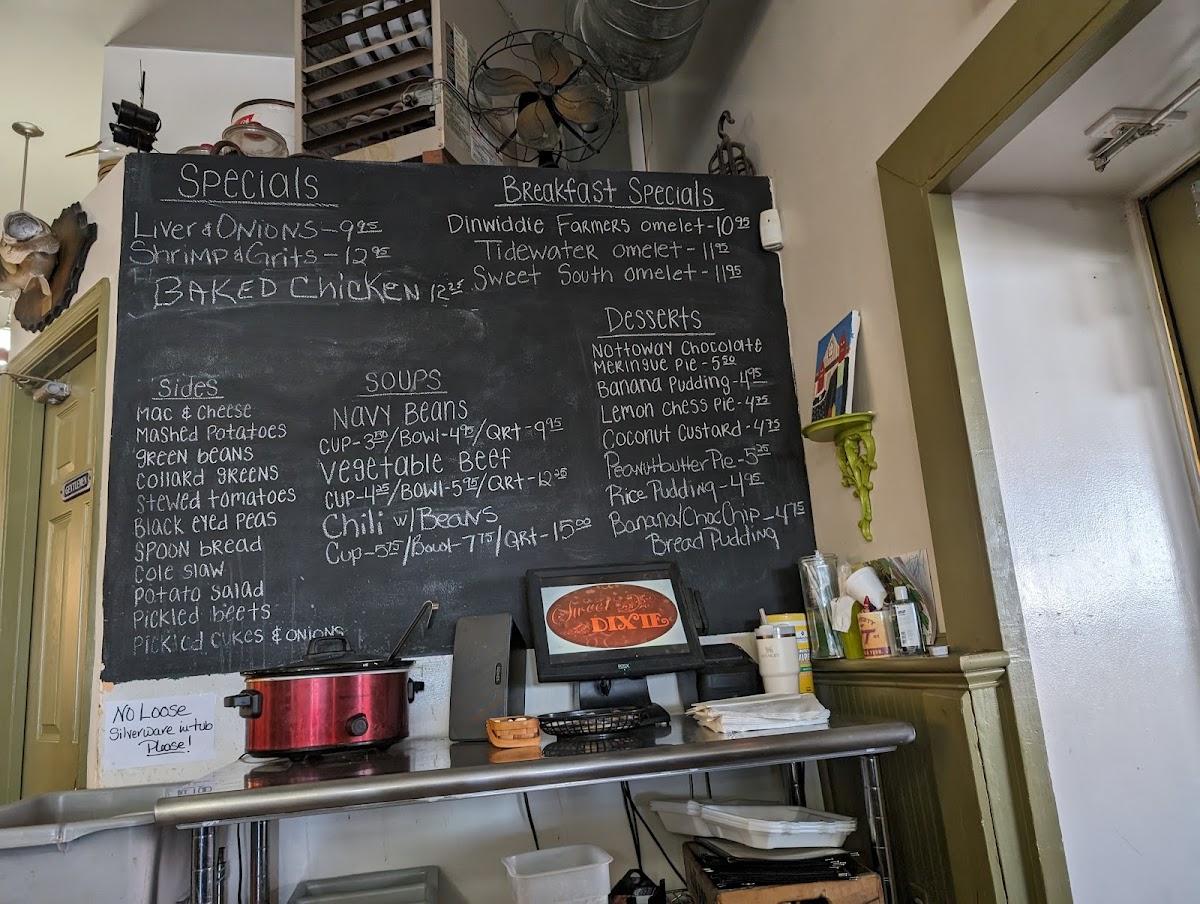 Specials
Liver & Onions - 9.95
Shrimp & Grits - 12.95
Baked Chicken 12.25
Breakfast Specials
Dinwiddie Farmers omelet - 10.95
Tidewater omelet - 11.95
Sweet South omelet - 11.95
Desserts
Nottoway Chocolate
Meringue Pie - 5.50
Banana Pudding - 4.95
Lemon Chess Pie - 4.75
Coconut Custard - 4.75
Peanutbutter Pie - 5.25
Rice Pudding - 4.95
Banana/Choc Chip - 4.75
Bread Pudding
Sides
Mac & Cheese
Mashed Potatoes
green beans
Collard greens
Stewed tomatoes
Black eyed Peas
Spoon bread
Cole slaw
Potato salad
Pickled beets
Pickled cukes & onions
Soups
Navy Beans
Cup - 3.50/Bowl - 4.95/Qrt - 9.95
Vegetable Beef
Cup - 4.25/Bowl - 5.95/Qrt - 12.25
Chili w/ Beans
Cup - 5.75/Bowl - 7.75/Qrt - 15.00
GENTLEMEN
Sweet
DIXIE
No Loose
Silverware in tub
Please!